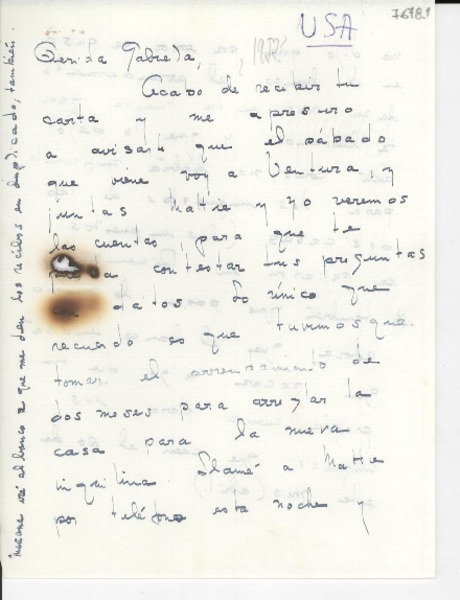 USA
76981
Querida Gabriela,
Acabo de recibir tu
carta y me apresuro
a avisarte que el sábado
que viene voy a Ventura, y
juntas Mattie y yo veremos
las cuentas, para que te
contestar tus preguntas
con datos. Lo único que
recuerdo es que tuvimos que
tomar el arrendamiento de
dos meses para arreglar la
casa para la nueva
inquilina. Llamé a Mattie
por teléfono esta noche y
Mañana iré al banco a que me den los recibos en duplicado, también.